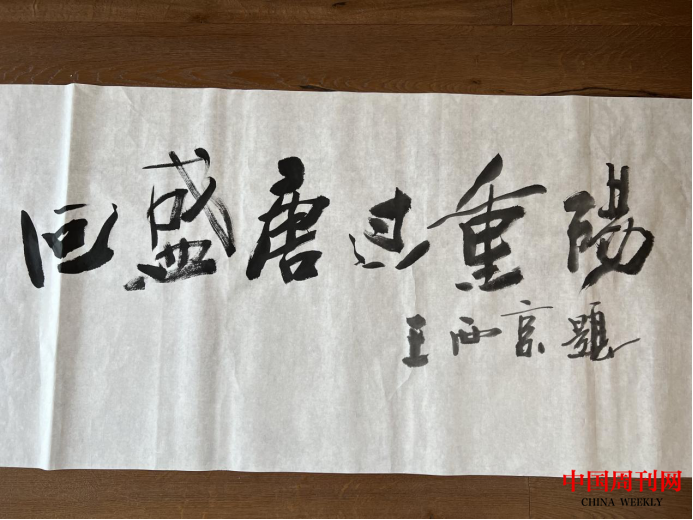 回盛唐过重陽
王西京題
中国周刊网
CHINA WEEKLY